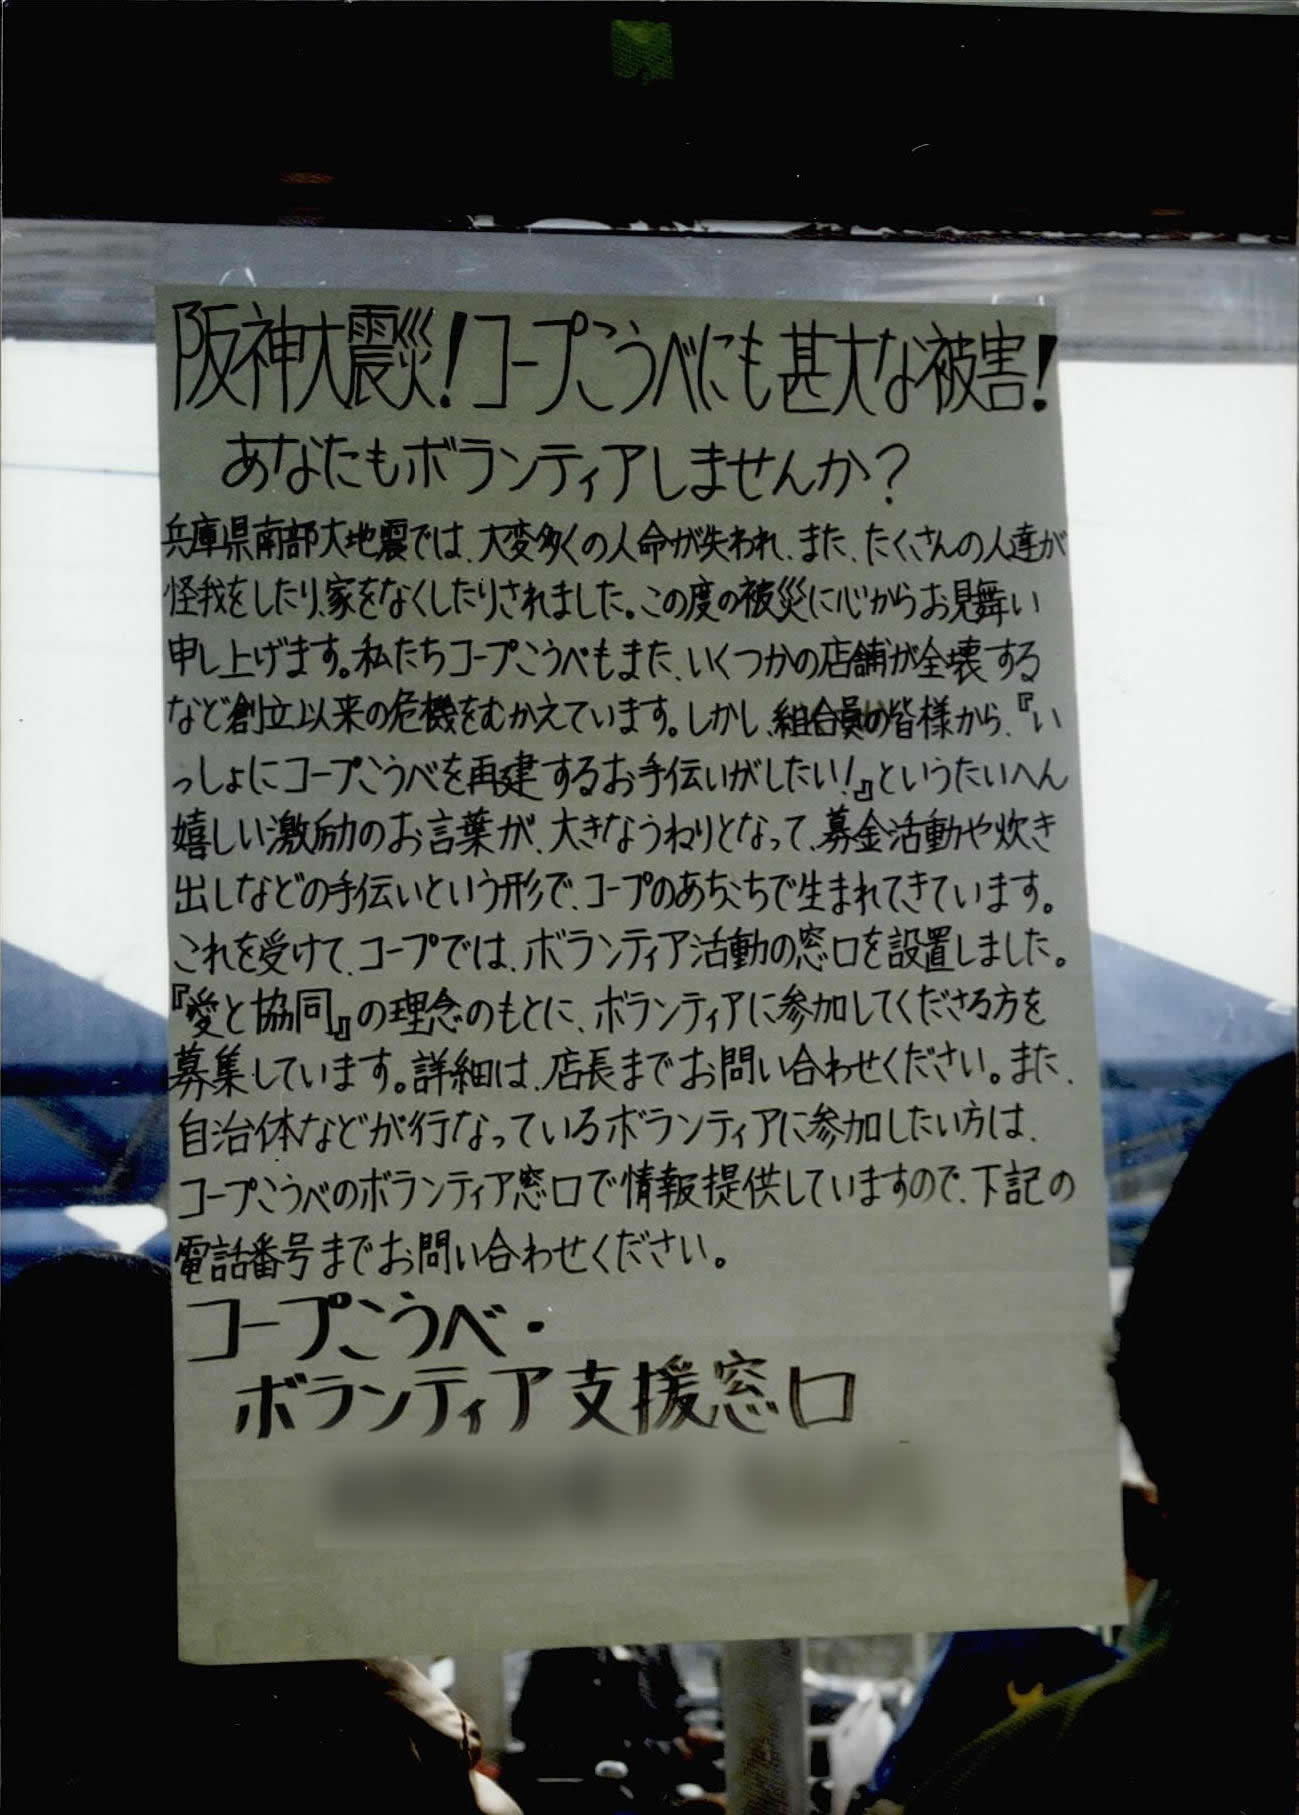 阪神大震災!コープこうべにも甚大な被害!
あなたもボランティアしませんか?
兵庫県南部大地震では、大変多くの人命が失われ、また、たくさんの人達が
怪我をしたり、家をなくしたりされました。この度の被災に心からお見舞い
申し上げます。私たちコープこうべもまた、いくつかの店舗が全壊する
など創立以来の危機をむかえています。しかし、組合員の皆様から、『い
っしょにコープこうべを再建するお手伝いがしたい!』というたいへん
嬉しい激励のお言葉が、大きなうねりとなって、募金活動や炊き
出しなどの手伝いという形で、コープのあちこちで生まれてきています。
これを受けて、コープでは、ボランティア活動の窓口を設置しました。
『愛と協同』の理念のもとに、ボランティアに参加してくださる方を
募集しています。詳細は、店長までお問い合わせください。また、
自治体などが行なっているボランティアに参加したい方は、
コープこうべのボランティア窓口で情報提供していますので、下記の
電話番号までお問い合わせください。
コープこうべ・
ボランティア支援窓口